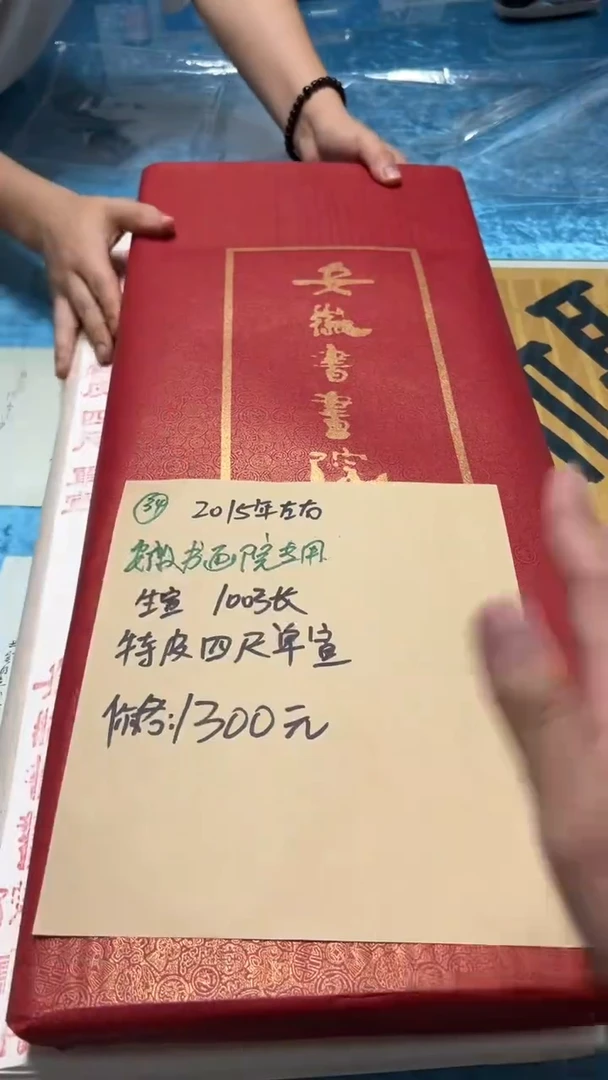 安徽書畫院
34 2015年左右
安徽书画院专用
生宣 100张
特皮四尺单宣
价格:1300元
皮 四尺 單宣